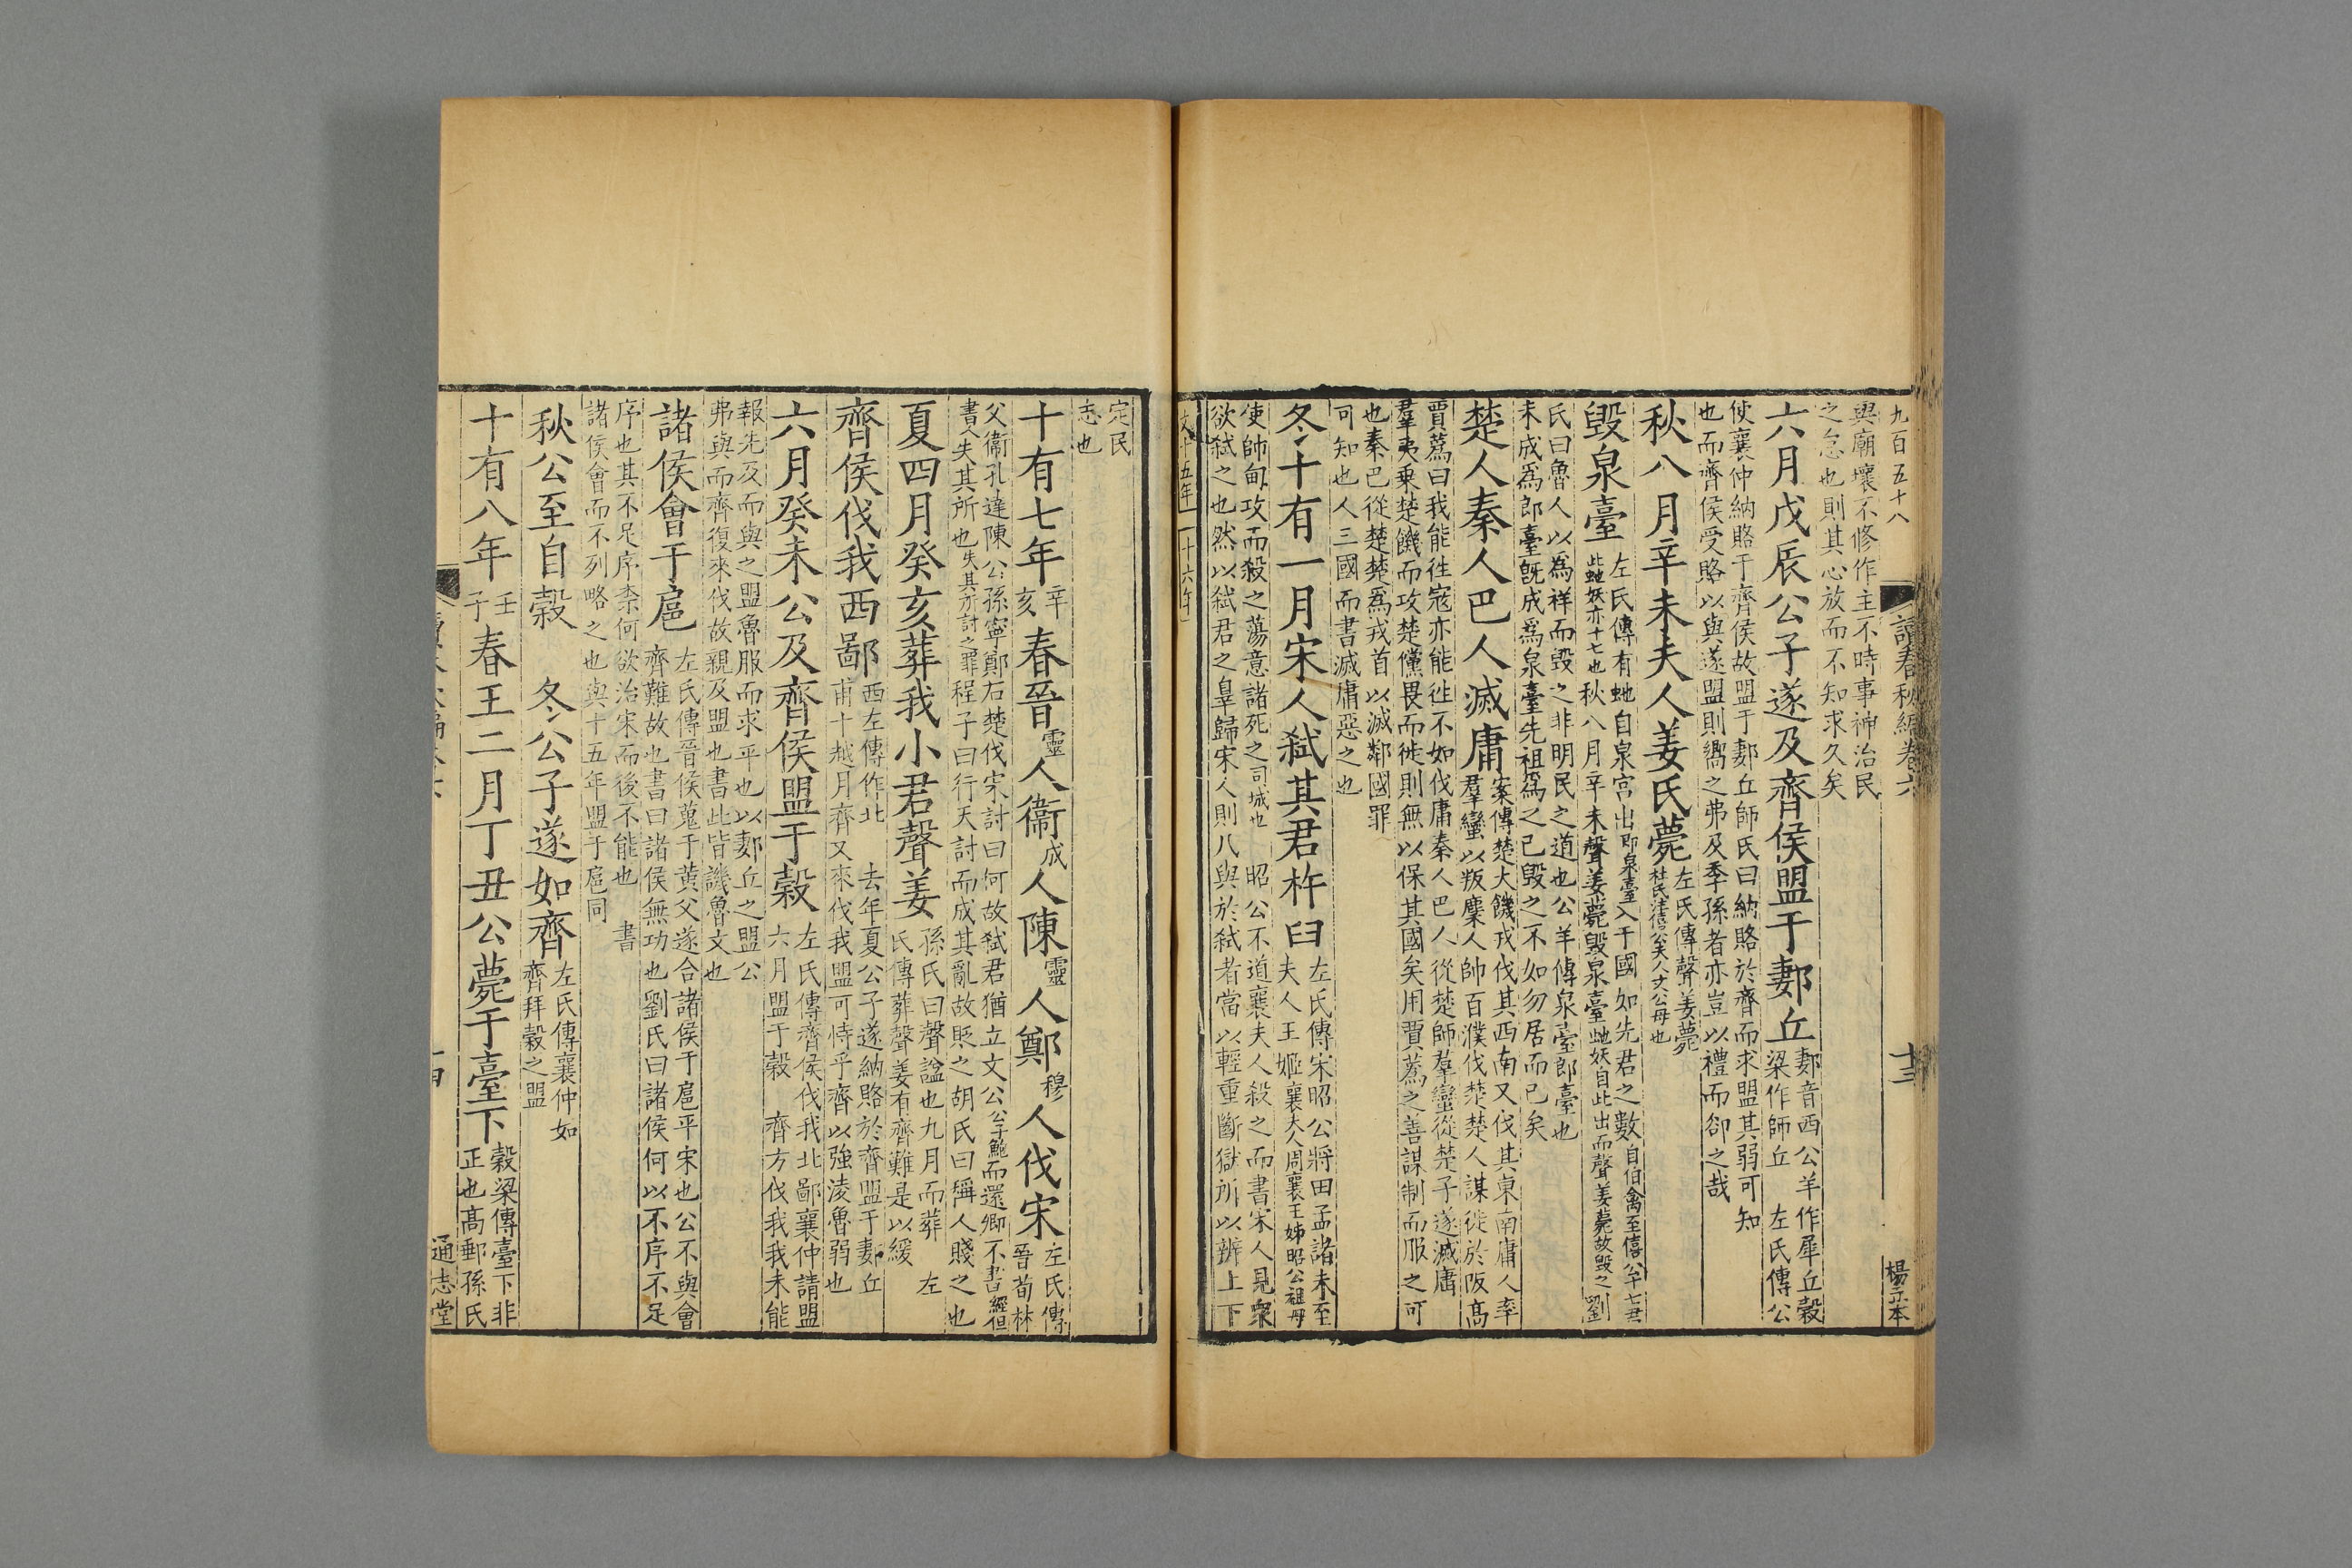 九百五十八
讀春秋編卷六
十三
與廟壞不修作主不時事神治民
之怠也則其心放而不知求久矣
六月戊辰公子遂及齊侯盟于郪丘
郪音西公羊作犀丘穀
梁作師丘　左氏傳公
使襄仲納賂于齊侯故盟于郪丘師氏曰納賂於齊而求盟其弱可知
也而齊侯受賂以與遂盟則嚮之弗及季孫者亦豈以禮而卻之哉
秋八月辛未夫人姜氏薨
左氏傳聲姜薨
杜氏注僖公夫人文公母也
毀泉臺
左氏傳有虵自泉宮出即泉臺入于國如先君之數自伯禽至僖公十七君
此虵妖亦十七也秋八月辛未聲姜薨毀泉臺虵妖自此出而聲姜薨故毀之劉
氏曰魯人以爲祥而毀之非明民之道也公羊傳泉臺郎臺也
未成爲郎臺旣成爲泉臺先祖爲之已毀之不如勿居而已矣
楚人秦人巴人滅庸
案傳楚大饑戎伐其西南又伐其東南庸人率
羣蠻以叛麇人帥百濮伐楚楚人謀徙於阪高
賈蔿曰我能往寇亦能往不如伐庸秦人巴人從楚師羣蠻從楚子遂滅庸
羣夷乗楚饑而攻楚儻畏而徙則無以保其國矣用賈蔿之善謀制而服之可
也秦巴從楚楚爲戎首以滅鄰國罪
可知也人三國而書滅庸惡之也
冬十有一月宋人弑其君杵臼
左氏傳宋昭公將田孟諸未至
夫人王姬襄夫人周襄王姊昭公祖母
使帥甸攻而殺之蕩意諸死之司城也　昭公不道襄夫人殺之而書宋人見衆
欲弑之也然以弑君之辠歸宋人則凡與於弑者當以輕重斷獄所以辨上下
文十五年　十六年
定民
志也
十有七年辛亥春晉靈人衞成人陳靈人鄭穆人伐宋
左氏傳
晉荀林
父衞孔達陳公孫寧鄭石楚伐宋討曰何故弑君猶立文公公子鮑而還卿不書經但
書人失其所也失其所討之罪程子曰行天討而成其亂故貶之胡氏曰稱人賤之也
夏四月癸亥葬我小君聲姜
孫氏曰聲諡也九月而葬　左
氏傳葬聲姜有齊難是以緩
齊侯伐我西鄙
西左傳作北　去年夏公子遂納賂於齊盟于郪丘
甫十越月齊又來伐我盟可恃乎齊以強淩魯弱也
六月癸未公及齊侯盟于穀
左氏傳齊侯伐我北鄙襄仲請盟
六月盟于穀　齊方伐我我未能
報先及而與之盟魯服而求平也以郪丘之盟公
弗與而齊復來伐故親及盟也書此皆譏魯文也
諸侯會于扈
左氏傳晉侯蒐于黃父遂合諸侯于扈平宋也公不與會
齊難故也書曰諸侯無功也劉氏曰諸侯何以不序不足
序也其不足序柰何欲治宋而後不能也　書
諸侯會而不列略之也與十五年盟于扈同
秋公至自穀　冬公子遂如齊
左氏傳襄仲如
齊拜穀之盟
十有八年壬子春王二月丁丑公薨于臺下
穀梁傳臺下非
正也髙郵孫氏
通志堂